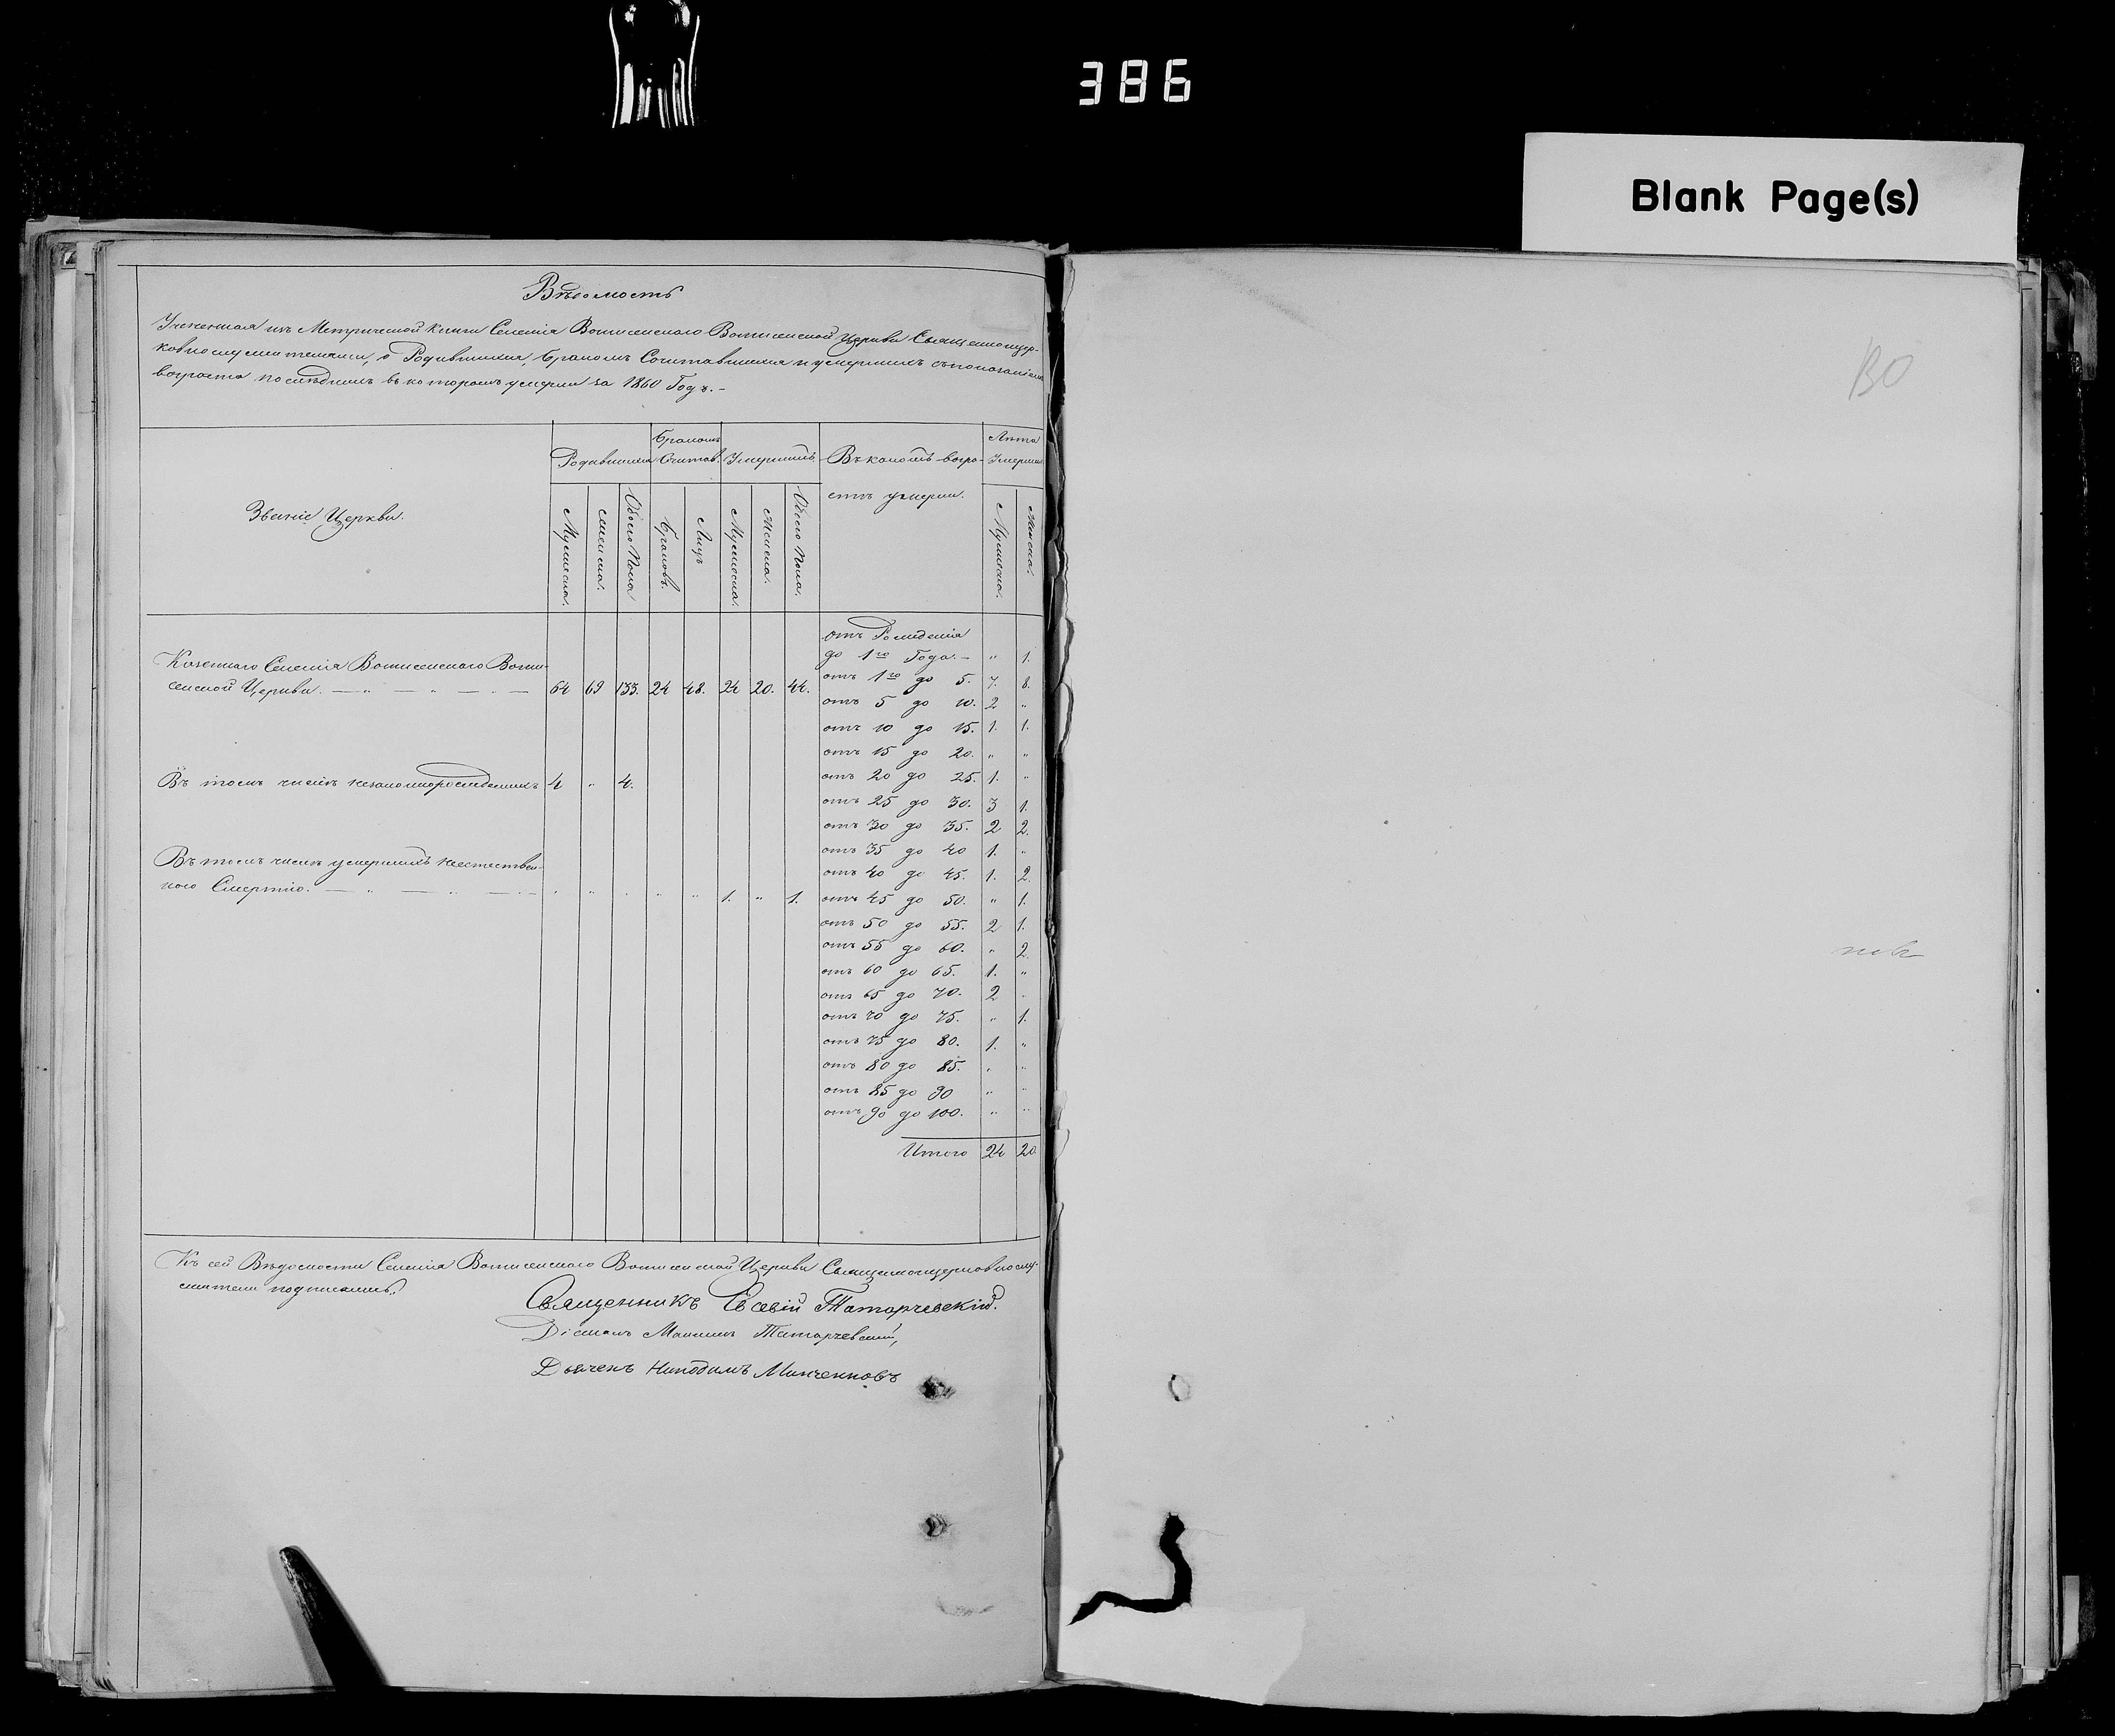 386
Blank Page(s)
Вѣдомость
Учененная изъ Метрической Книги Селенія Вознесенскаго Вознесенской Церкви Священноцер-
ковнослужителями, о Родившихся, Бракомъ Сочитавшихся и умершихъ съ показаніемъ
возраста послѣднихъ въ которомъ умерли за 1860 Годъ. –
Званіе Церкви.
Родившихся
Бракомъ Сочитав.
Умершихъ
Въ какомъ возра-
стѣ умерли.
Лѣта Умерших
Мужеска. Женска. Обоего Пола Браковъ. Лицъ Мужеска. Женска. Обоего Пола. Мужеска. Женска.
Казеннаго Селенія Вознесенскаго Возне-
сенской Церкви. — " — " — . — 64 69 133. 24 48. 24 20. 44.
Въ томъ числѣ незаконнорожденныхъ 4 " 4.
Въ томъ числѣ умершихъ неестествен-
ною Смертію. — " — " — . — " " " " " 1. " 1.
отъ Рожденія
до 1го Года. – " 1.
отъ 1го до 5. 7. 8.
отъ 5 до 10. 2 "
отъ 10 до 15. 1. 1.
отъ 15 до 20. " "
отъ 20 до 25. 1. "
отъ 25 до 30. 3 1.
отъ 30 до 35. 2 2.
отъ 35 до 40 1. "
отъ 40 до 45. 1. 2.
отъ 45 до 50. " 1.
отъ 50 до 55. 2 1.
отъ 55 до 60. " 2
отъ 60 до 65. 1. "
отъ 65 до 70. 2 "
отъ 70 до 75. " 1.
отъ 75 до 80. 1. "
отъ 80 до 85. " "
отъ 85 до 90 " "
отъ 90 до 100. " "
Итого 24 20
Къ сей Вѣдомости Селенія Вознесенскаго Вознесенской Церкви Священноцерковнослу-
жители подписались.
Священникъ Евсевій Татарчевскій.
Діаконъ Татарчевскій,
Дьячекъ Никодимъ Минченковъ